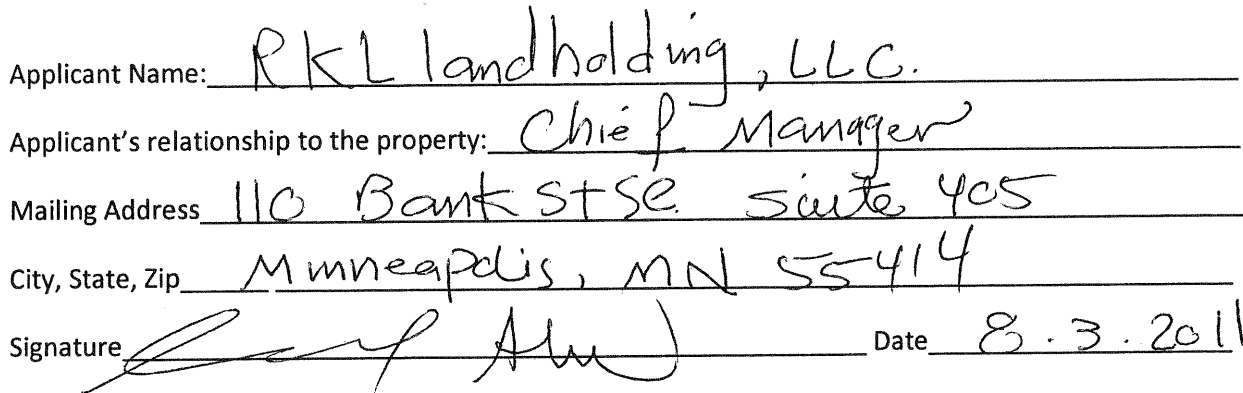 Applicant Name: RKL landholding, LLC.
Applicant's relationship to the property: Chief Manager
Mailing Address 110 Bank St SE. Suite 405
City, State, Zip Minneapolis, MN 55414
Signature Date 8.3.2011